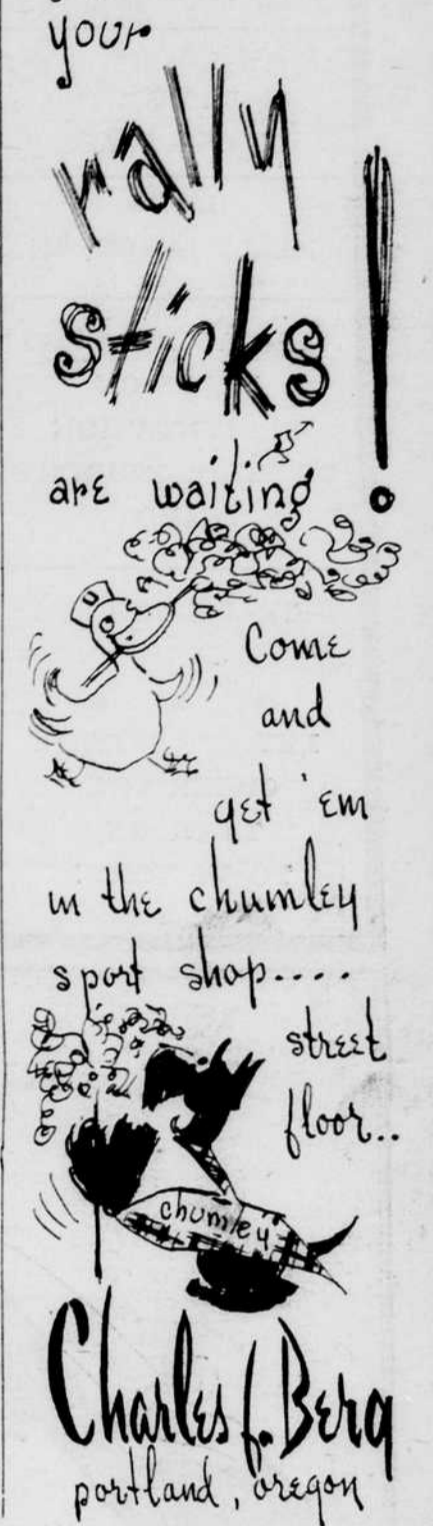 your
rally
sticks!
are waiting
Come
and
get 'em
in the chumley
sport shop....
street
floor..
chumley
Charles f. Berg
portland, oregon